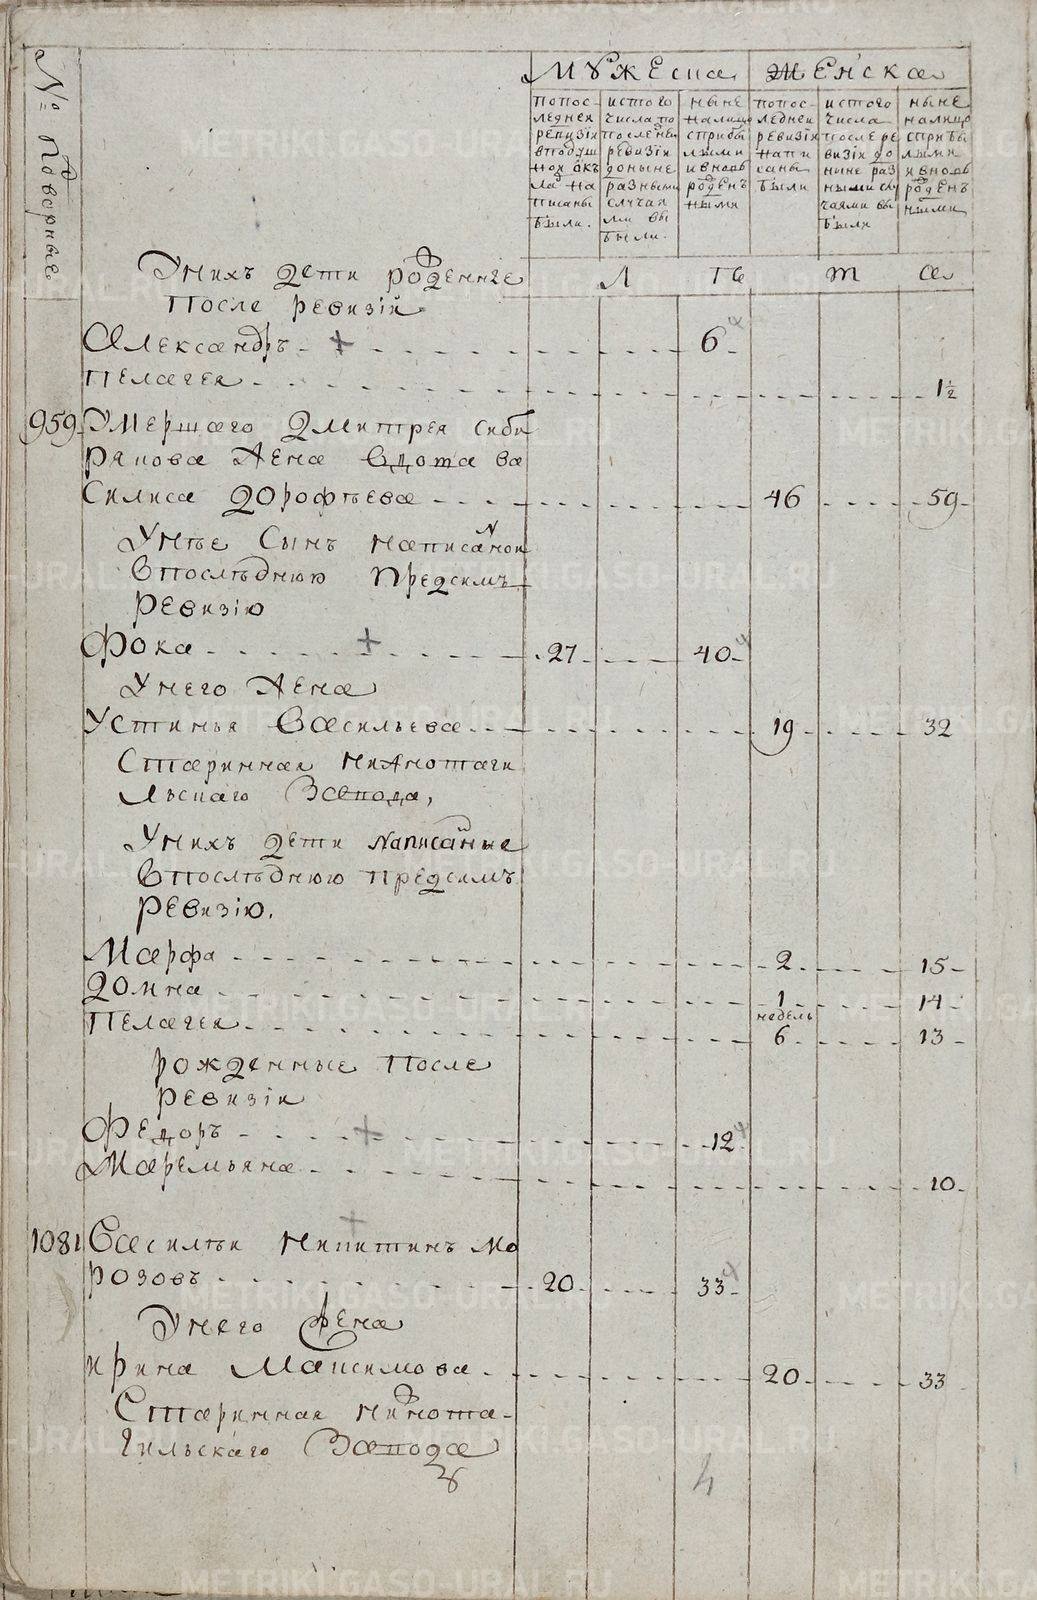 № Подворные
Мужеска
Женска
попос-
ледней
ревизiи
вподуш
ной окъ
лад на
писаны
были.
истого
числа по
после ней
ревизiи
доныне
разными
случая
ми вы
были.
ныне
налицо
сприбы
лыми
ивновь
рожденъ
ными
попос-
ледней
ревизiи
напи
саны
были
истого
числа
после ре
визiи до
ныне раз
ными слу
чаями вы
были
ныне
налицо
сприбы
лыми
ивновь
рожденъ
ными
Л ѣ т а
Унихъ дети рожденые
После ревизiй
Александръ 6
Пелагея 1½
959 Умершаго Дмитрея Сиби
рякова Жена вдова ва
силиса Дорофѣева 46 59
Унѣе Сынъ написаной
Впослѣднюю предсимъ
Ревизiю
Фока 27 40
Унего Жена
Устинья Васильева 19 32
Старинная нижнотаги
льскаго Завода,
Унихъ дети написаные
Впослѣднюю предсимъ
Ревизiю.
Марфа 2 15
Домна 1 14
недель
Пелагея 6 13
рожденные После
Ревизiи
Федоръ 12
Маремьяна 10
1081 Василѣи Никитинъ Мо
розовъ 20 33
Унего Жена
ирина Максимова 20 33
Старинная нижнота-
гильскаго Завода
4
METRIKI.GASO-URAL.RU